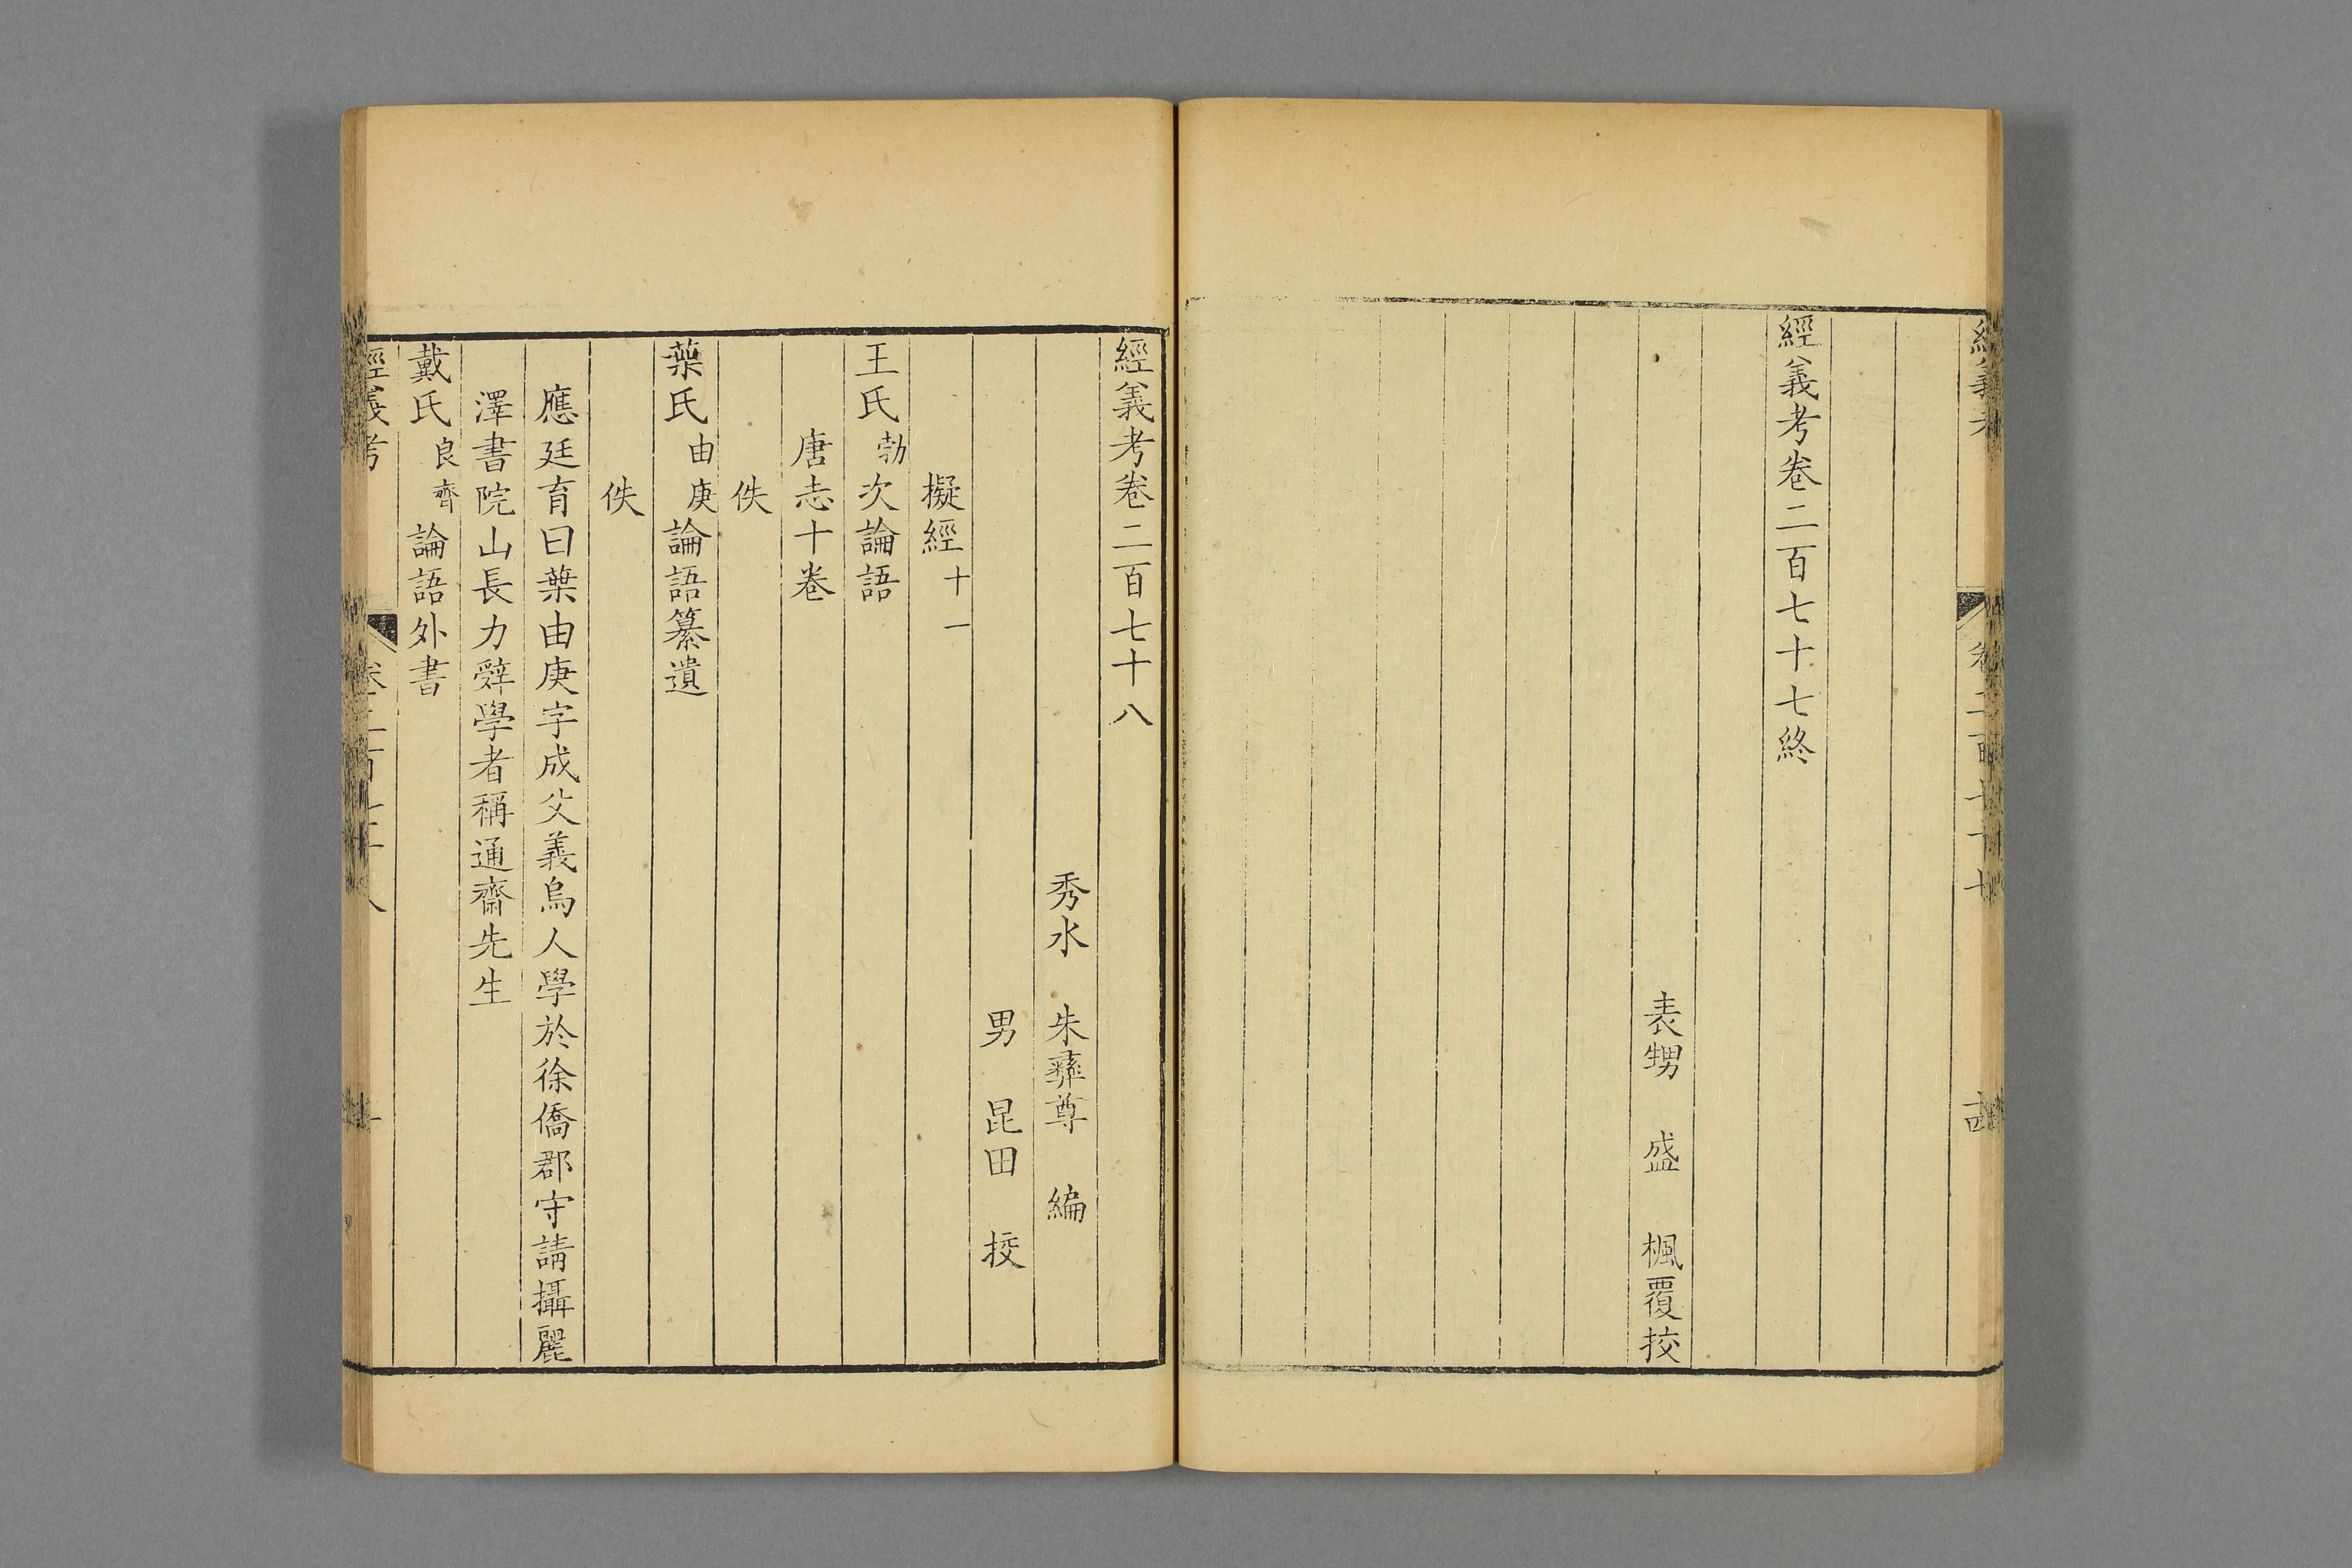 經義考卷二百七十七終
表甥　盛　楓覆挍
經義考　卷二百七十七　十四
經義考卷二百七十八
秀水　朱彝尊　編
男　昆田　挍
擬經十一
王氏勃次論語
唐志十卷
佚
葉氏由庚論語纂遺
佚
應廷育曰葉由庚字成父義烏人學於徐僑郡守請攝麗
澤書院山長力辭學者稱通齋先生
戴氏良齊論語外書
經義考　卷二百七十八　一